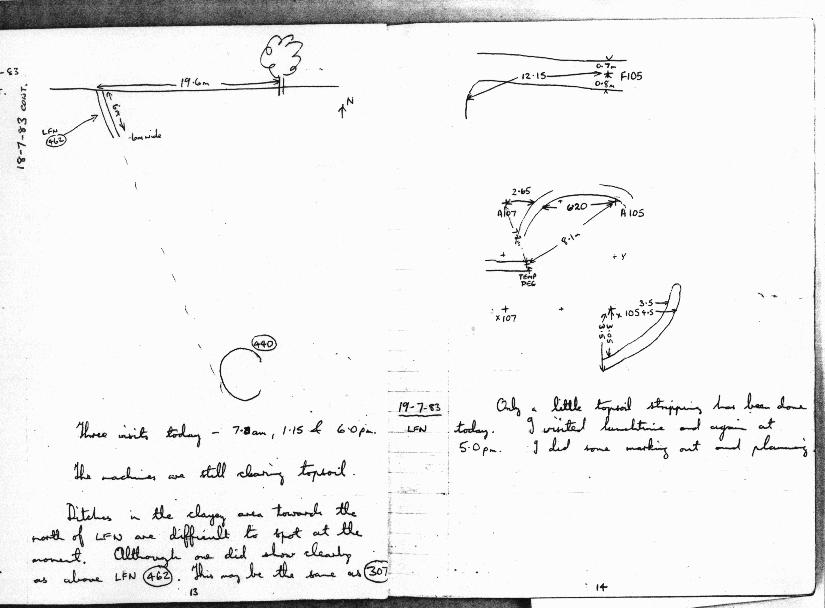 -83
18-7-83 CONT.
19.6m
6m
N
LFN
462
.6m wide
440
Three visits today - 7.8am, 1.15 & 6.0pm.
The machines are still clearing topsoil.
Ditches in the clayey area towards the
north of LFN are difficult to spot at the
moment. Although one did show clearly
as above LFN 462. This may be the same as 307
13
12.15
0.7m
F105
0.8m
2.65
A107
620
A105
8.1m
TEMP
PEG
+Y
X107
3.5
X105 4.5
5.3
3.05
19-7-83
LFN
Only a little topsoil stripping has been done
today. I visited lunchtime and again at
5.0pm. I did some marking out and planning.
14